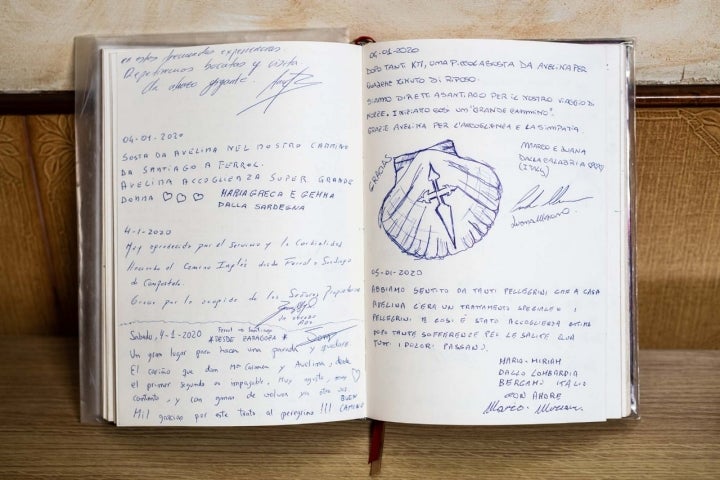 en estos fecundas experiencias.
Repetiremos bocatas y visita
Un abrazo gigante.
04-01-2020
SOSTA DA AVELINA NEL NOSTRO CAMMINO
DA SANTIAGO A FERROL.
AVELINA ACCOGLIENZA SUPER GRANDE
DONNA ♡♡♡ MARIAGRECA E GEMMA
DALLA SARDEGNA
4-1-2020
Muy agradecido por el Servicio y la Cordialidad
el Camino Inglés desde Ferrol a Santiago
de Compostela.
por la acogida de los Señores
Ferrol → Santiago
Sabado, 4-1-2020 *DESDE ZARAGOZA*
Un gran lugar para hacer una parada y quedarse
El cariño que dan Mª Carmen y Avelina, desde
el primer segundo es impagable. Muy agusto, muy ♡
contento, y con ganas de volver ya otra vez. BUEN
Mil gracias por este trato al peregrino!!! CAMINO
04-01-2020
DOPO TANTI KM, UNA PICCOLA SOSTA DA AVELINA PER
QUALCHE MINUTO DI RIPOSO.
SIAMO DIRETTI A SANTIAGO PER IL NOSTRO VIAGGIO DI
NOZZE, INIZIATO COSÌ UN "GRANDE CAMMINO".
GRAZIE AVELINA PER L'ACCOGLIENZA E LA SIMPATIA
MARCO E
DALLA CALABRIA
(ITALY)
GRACIAS
05-01-2020
ABBIAMO SENTITO DA TANTI PELLEGRINI CHE A CASA
AVELINA C'ERA UN TRATTAMENTO SPECIALE X I
PELLEGRINI. E COSI È STATO ACCOGLIENZA OTTIMA
DOPO TANTE SOFFERENZE PER LE SALITE QUA
TUTTI I DOLORI PASSANO.
MARIO - MIRIAM
DALLA LOMBARDIA
BERGAMO ITALIA